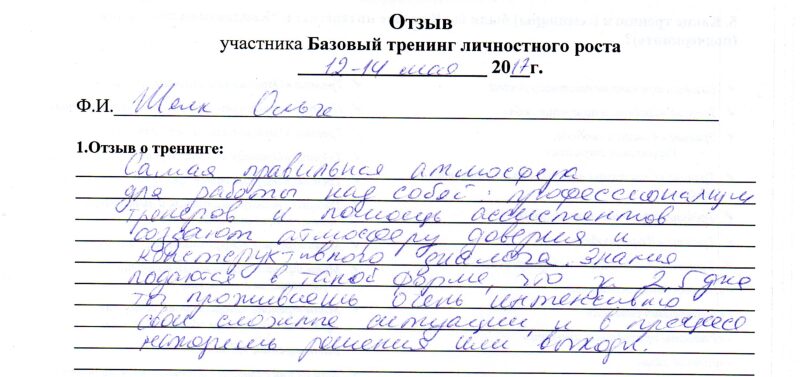 Отзыв
участника Базовый тренинг личностного роста
12-14 мая 2017г.
Ф.И. Шелк Ольга
1.Отзыв о тренинге:
Самая правильная атмосфера
для работы над собой: профессионализм
тренеров и помощь ассистентов
создают атмосферу доверия и
конструктивного диалога. Знания
подаются в такой форме, что за 2,5 дня
ты проживаешь очень интенсивно
свои сложные ситуации и в процессе
находишь решения или выходы.